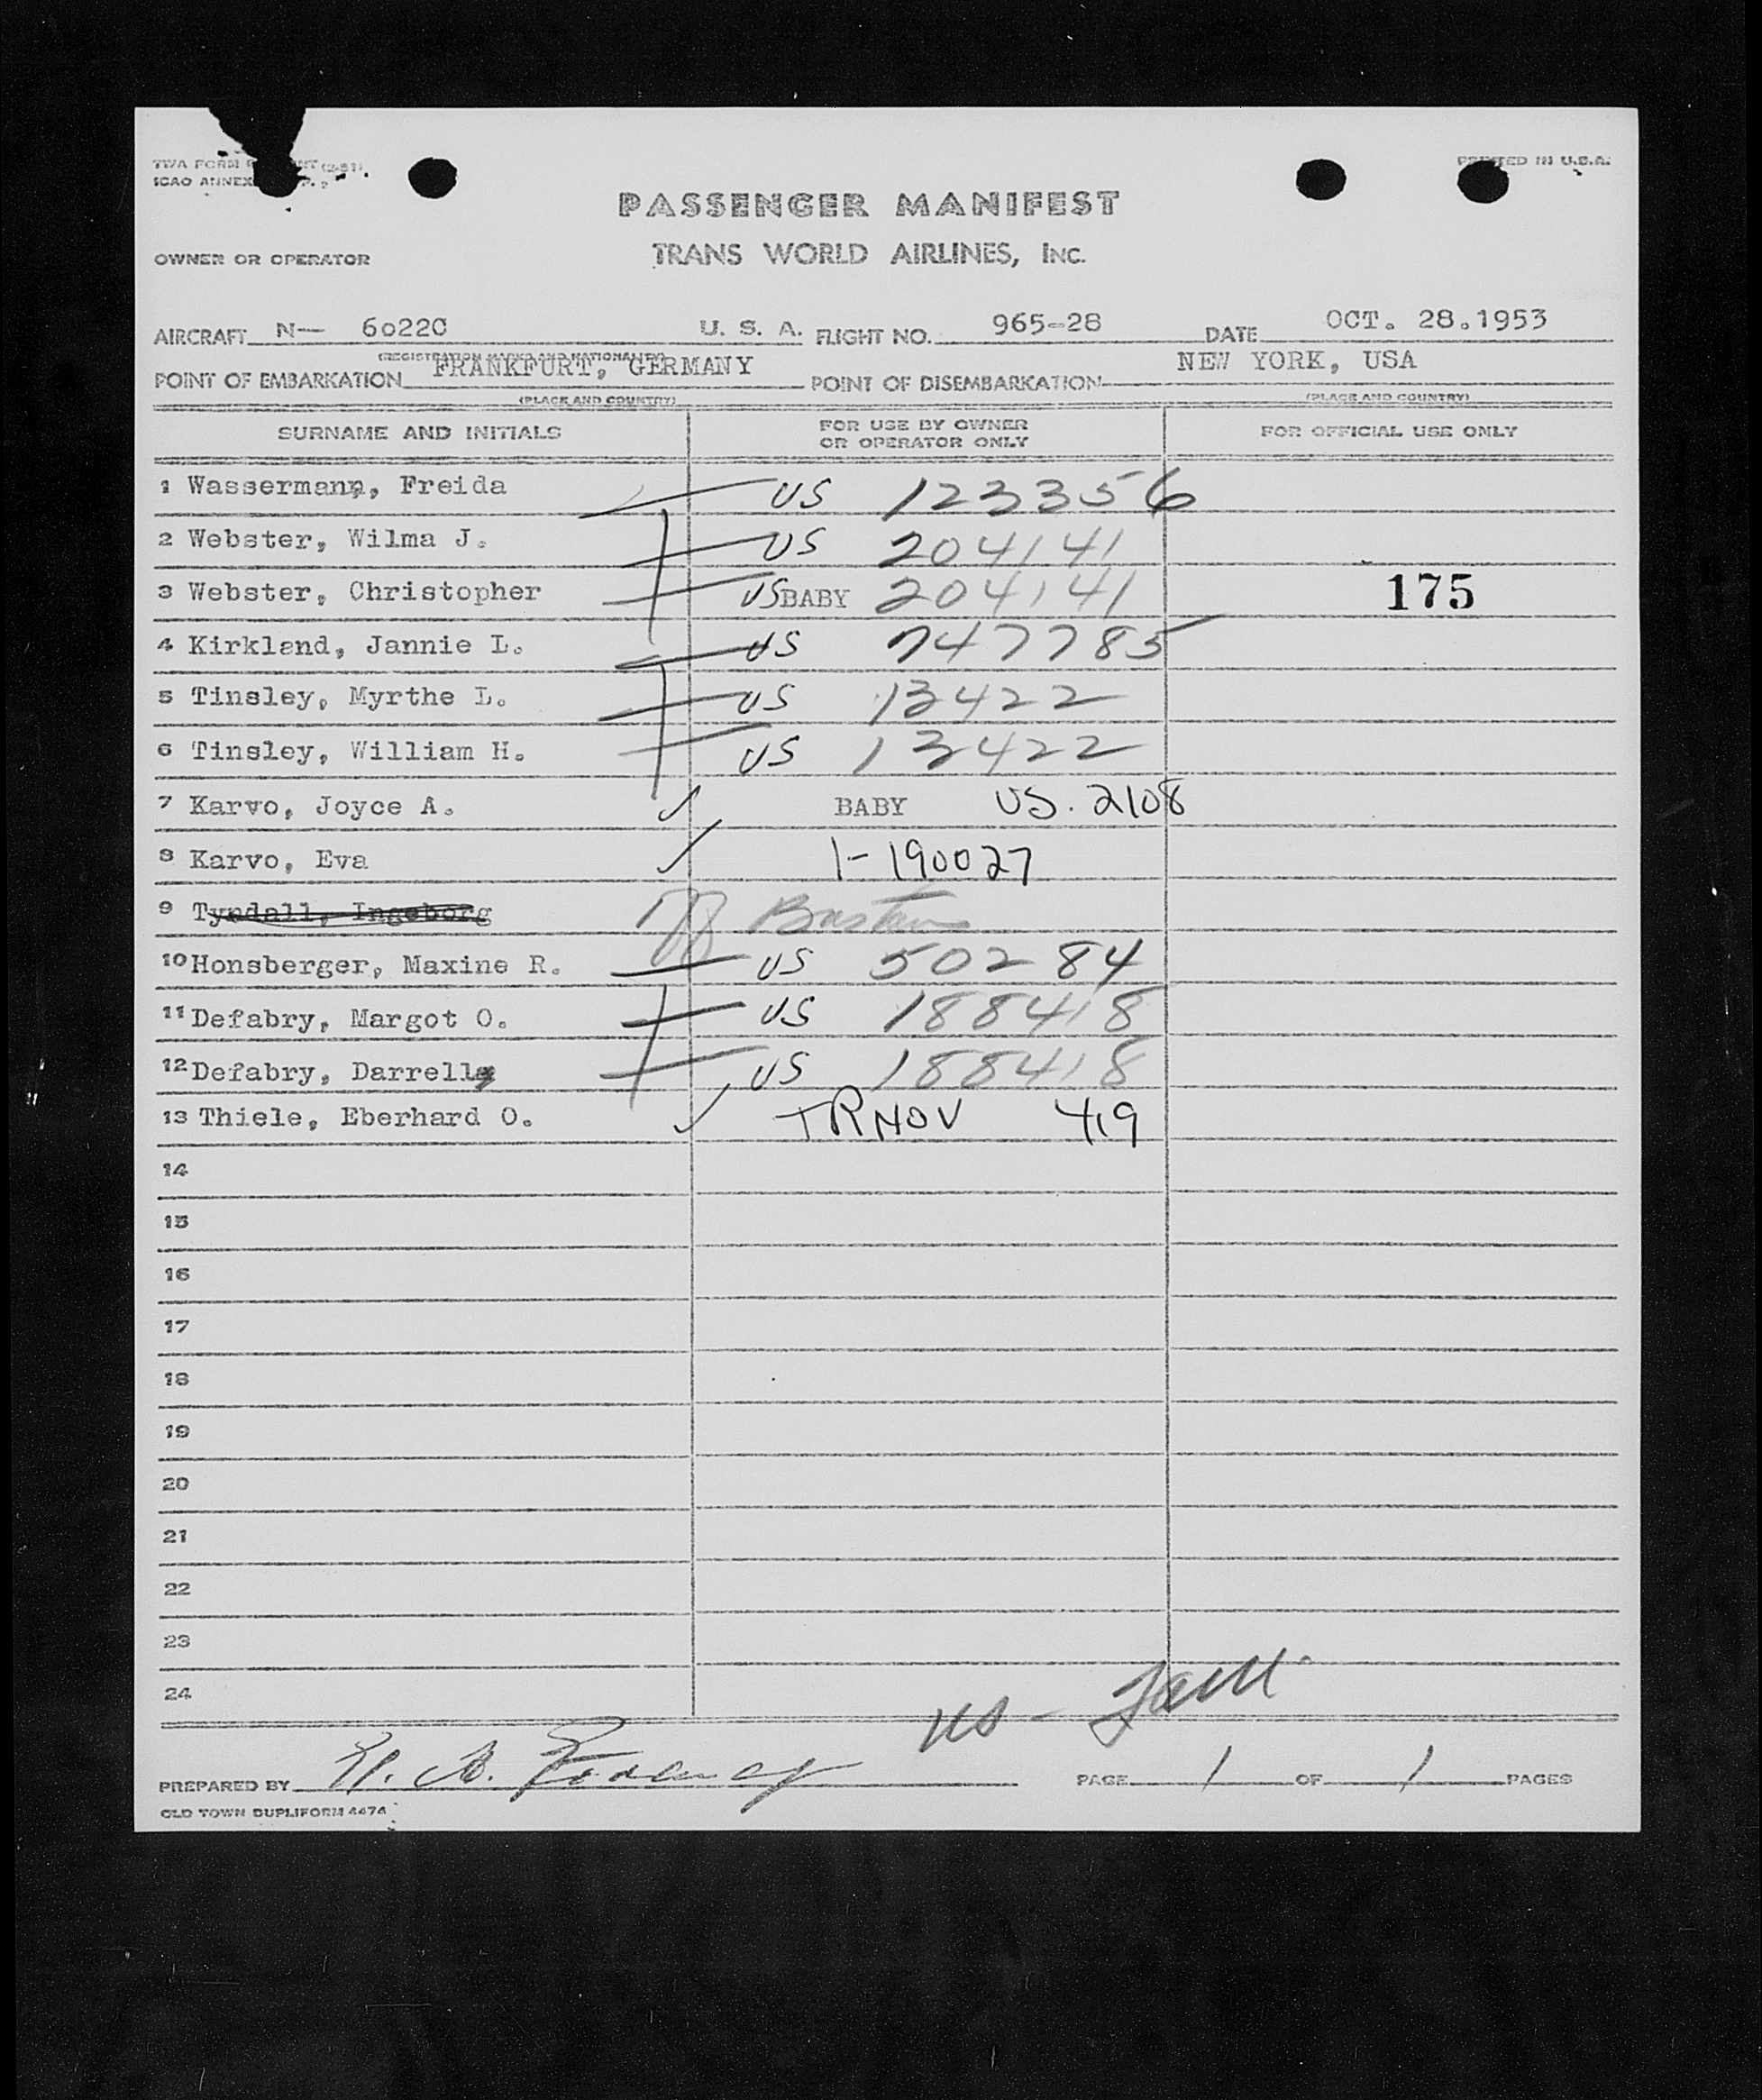 TWA FORM
ICAO ANNEX
PRINTED IN U.S.A.
PASSENGER MANIFEST
TRANS WORLD AIRLINES, INC.
OWNER OR OPERATOR
AIRCRAFT N— 6022C U. S. A. FLIGHT NO. 965-28 DATE OCT. 28.1953
(REGISTRATION MARKS AND NATIONALITY)
POINT OF EMBARKATION FRANKFURT, GERMANY POINT OF DISEMBARKATION NEW YORK, USA
(PLACE AND COUNTRY) (PLACE AND COUNTRY)
SURNAME AND INITIALS FOR USE BY OWNER OR OPERATOR ONLY FOR OFFICIAL USE ONLY
1 Wassermann, Freida US 123356
2 Webster, Wilma J. US 204141
3 Webster, Christopher US BABY 204141 175
4 Kirkland, Jannie L. US 747785
5 Tinsley, Myrthe L. US 13422
6 Tinsley, William H. US 13422
7 Karvo, Joyce A. BABY US. 2108
8 Karvo, Eva 1-190027
9 Tyndall, Ingeborg
10 Honsberger, Maxine R. US 50284
11 Defabry, Margot O. US 188418
12 Defabry, Darrell US 188418
13 Thiele, Eberhard O. TRNOV 419
14
15
16
17
18
19
20
21
22
23
24
US -
PREPARED BY PAGE 1 OF 1 PAGES
OLD TOWN DUPLIFORM 4474